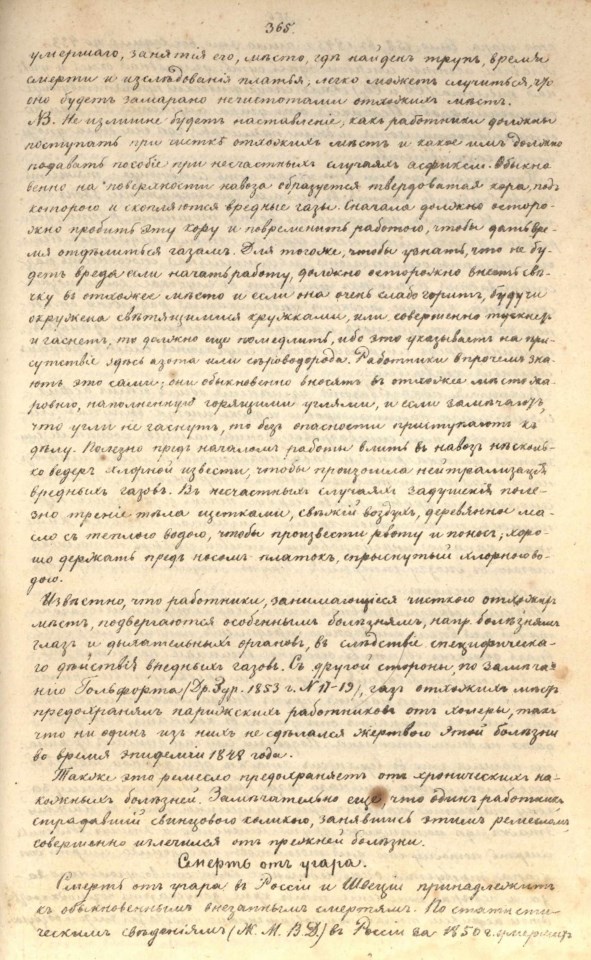 365.
умершаго, занятія его, мѣсто, гдѣ найденъ трупъ, время
смерти и изслѣдованія платья; легко можетъ случиться, что
оно будетъ замарано нечистотами отхожихъ мѣстъ.
NЗ. Не излишне будетъ наставленіе, какъ работники должны
поступать при чисткѣ отхожихъ мѣстъ и какое имъ должно
подавать пособіе при несчастныхъ случаяхъ асфиксіи. Обыкно
венно на поверхности навоза образуется твердоватая кора, подъ
которою и скопляются вредные газы. Сначала должно осторо-
жно пробить эту кору и повременить работою, чтобы дать вре-
мя отдѣлиться газамъ. Для того же, чтобы узнать, что не бу-
детъ вреда если начать работу, должно осторожно внести свѣ-
чку въ отхожее мѣсто и если она очень слабо горитъ, будучи
окружена свѣтящимися кружками, или совершенно тускнетъ
и гаснетъ, то должно еще помедлить, ибо это указываетъ на при-
сутствіе здѣсь азота или сѣроводорода. Работники впрочемъ зна-
ютъ это сами; они обыкновенно вносятъ въ отхожее мѣсто жа-
ровню, наполненную горящими углями, и если замѣчаютъ,
что угли не гаснутъ, то безъ опасности приступаютъ къ
дѣлу. Полезно предъ началомъ работы влить въ навозъ нѣсколь-
ко ведеръ хлорной извести, чтобы произошла нейтрализація
вредныхъ газовъ. Въ несчастныхъ случаяхъ задушенія поле-
зно треніе тѣла щетками, свѣжій воздухъ, деревянное ма-
сло съ теплою водою, чтобы произвести рвоту и поносъ; хоро-
шо держать предъ носомъ платокъ, спрыснутый хлорною во-
дою.
Извѣстно, что работники, занимающіеся чисткою отхожихъ
мѣстъ, подвергаются особеннымъ болѣзнямъ, напр. болѣзнямъ
глазъ и дыхательныхъ органовъ, въ слѣдствіе специфическа-
го дѣйствія вредныхъ газовъ. Съ другой стороны, по замѣча-
нію Гольфорта (Др. Зур. 1853 г. N 17-19), газъ отхожихъ мѣстъ
предохранялъ парижскихъ работниковъ отъ холеры, такъ
что ни одинъ изъ нихъ не сдѣлался жертвою этой болѣзни
во время эпидеміи 1848 года.
Также это ремесло предохраняетъ отъ хроническихъ на-
кожныхъ болѣзней. Замѣчательно еще, что одинъ работникъ
страдавшій свинцовою коликою, занявшись этимъ ремесломъ,
совершенно излечился отъ прежней болѣзни.
Смерть отъ угара.
Смерть отъ угара въ Россіи и Швеціи принадлежитъ
къ обыкновеннымъ внезапнымъ смертямъ. По статисти-
ческимъ свѣдѣніямъ (Ж. М. В. Д.) въ Россіи за 1850 г. умершихъ